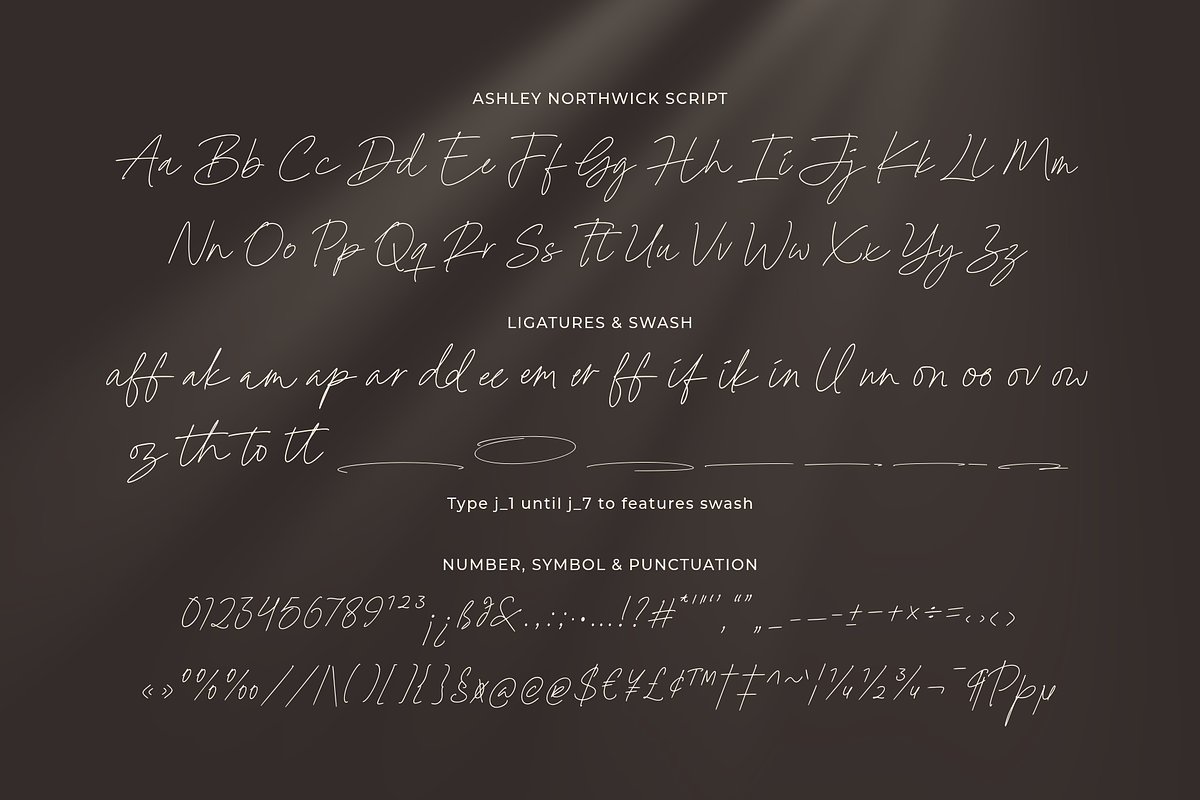 ASHLEY NORTHWICK SCRIPT
Aa Bb Cc Dd Ee Ff Gg Hh Ii Jj Kk Ll Mm
Nn Oo Pp Qq Rr Ss Tt Uu Vv Ww Xx Yy Zz
LIGATURES & SWASH
aff ak am ap ar dd ee em er ff if ik in ll nn on oo ov ow
oz th to tt
Type j_1 until j_7 to features swash
NUMBER, SYMBOL & PUNCTUATION
0123456789¹²³¡¿ß&.,:;·•…!?#*"'‘’“”‚„_-–—±−+×÷=‹›<>
«»°%‰//|\()[]{}§¤@©®$€¥£¢™†‡^~`¦¼½¾¬¯¶Þþµ